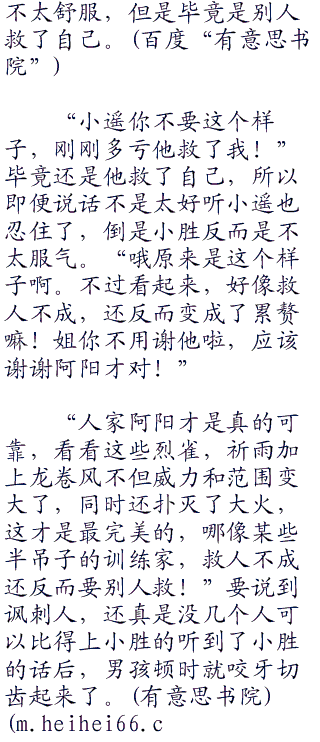 不太舒服，但是毕竟是别人
救了自己。(百度“有意思书
院”)
“小遥你不要这个样
子，刚刚多亏他救了我！”
毕竟还是他救了自己，所以
即便说话不是太好听小遥也
忍住了，倒是小胜反而是不
太服气。“哦原来是这个样
子啊。不过看起来，好像救
人不成，还反而变成了累赘
嘛！姐你不用谢他啦，应该
谢谢阿阳才对！”
“人家阿阳才是真的可
靠，看看这些烈雀，祈雨加
上龙卷风不但威力和范围变
大了，同时还扑灭了大火，
这才是最完美的，哪像某些
半吊子的训练家，救人不成
还反而要别人救！”要说到
讽刺人，还真是没几个人可
以比得上小胜的听到了小胜
的话后，男孩顿时就咬牙切
齿起来了。(有意思书院)
(m.heihei66.c